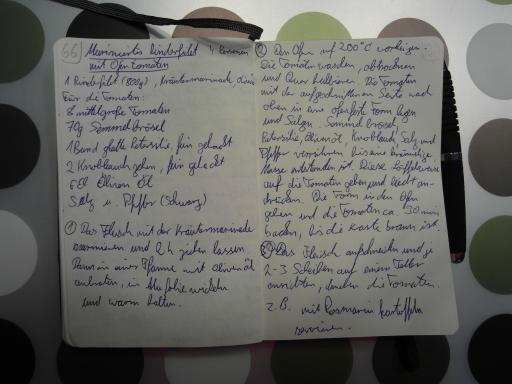 66 Mariniertes Rinderfilet 4 Personen
mit Ofentomaten
1 Rinderfilet (800g), Kräutermarinade,
Für die Tomaten:
8 mittelgroße Tomaten
70g Semmelbrösel
1 Bund glatte Petersilie, fein gehackt
2 Knoblauchzehen, fein gehackt
6 El Oliven Öl
Salz u. Pfeffer (Schwarz)
① Das Fleisch mit der Kräutermarinade
marinieren und 2 h ziehen lassen
Dann in einer Pfanne mit Olivenöl
anbraten, in Alufolie wickeln
und warm halten.
② Den Ofen auf 200°C vorheizen.
Die Tomaten waschen, abtrocknen
und Quer halbieren. Die Tomaten
mit der aufgeschnittenen Seite nach
oben in eine ofenfeste Form legen
und Salzen. Semmelbrösel,
Petersilie, Olivenöl, Knoblauch, Salz und
Pfeffer verrühren bis eine krümelige
Masse entstanden ist. Diese Löffelweise
auf die Tomaten geben und leicht an-
drücken. Die Form in den Ofen
geben und die Tomaten ca. 30 min
backen, bis die Kruste braun ist.
③ Das Fleisch aufschneiden und je
2-3 Scheiben auf einem Teller
anrichten, daneben die Tomaten.
z.B. mit Rosmarinkartoffeln
servieren.